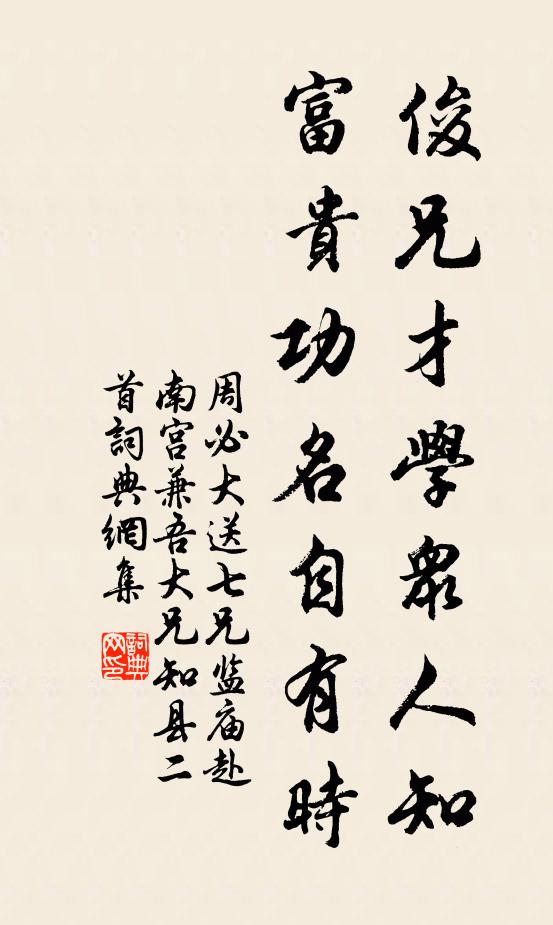 俊兄才學衆人知
富貴功名自有時
周必大送七兄监庙赴
南宫兼吾大兄知县二
首詞典網集
詞典网印